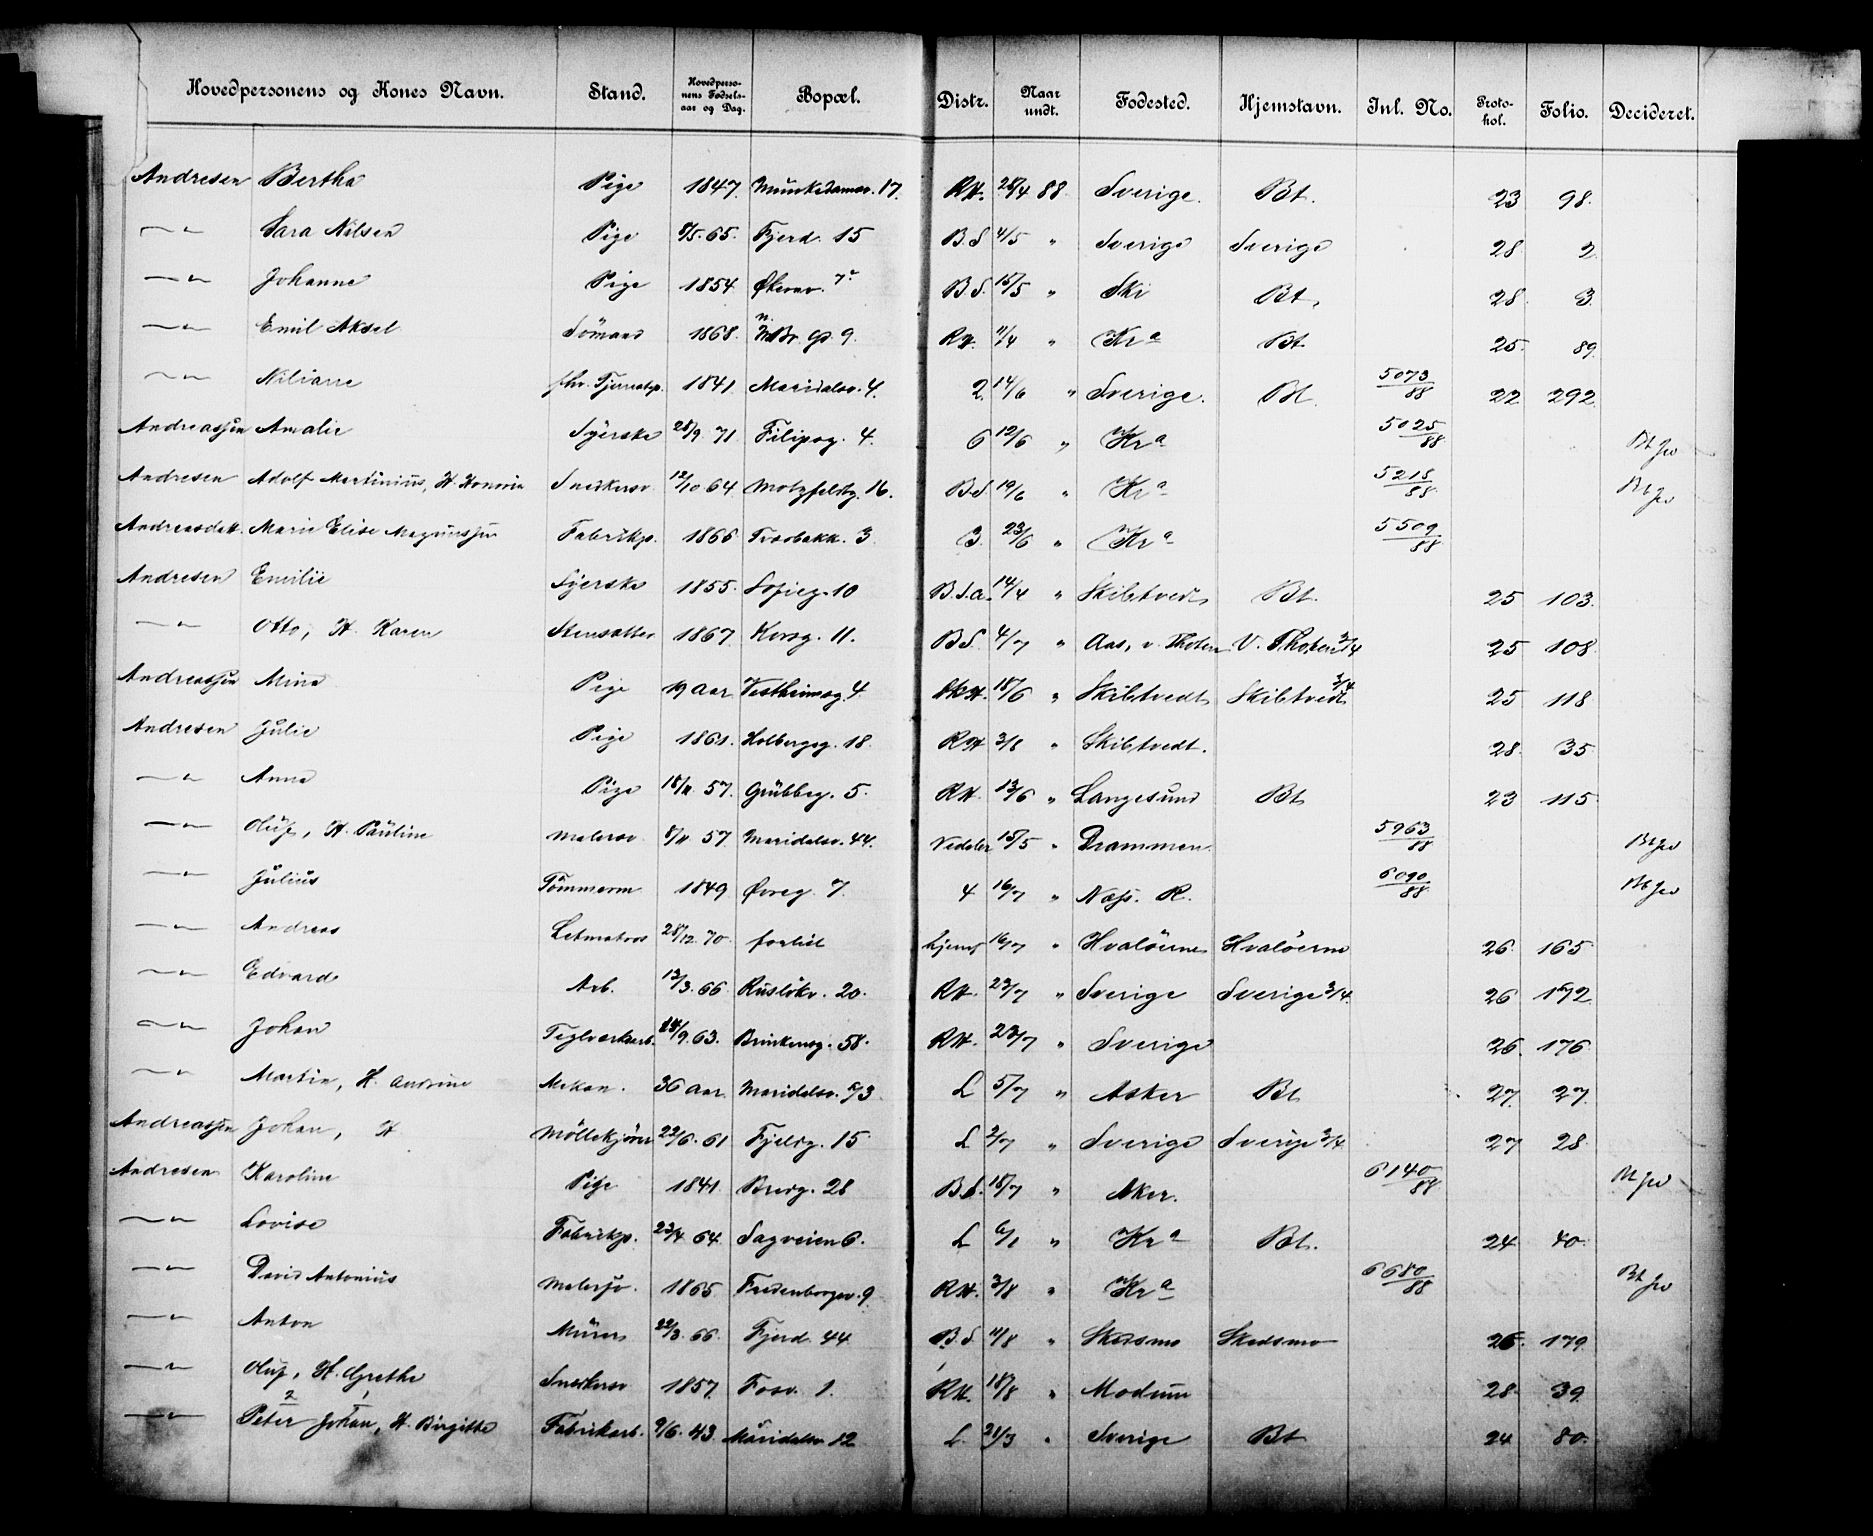 Hovedpersonens og Kones Navn. Stand. Hovedpersonens Fødselsaar og Dag. Bopæl. Distr. Naar undt. Fødested. Hjemstavn. Inl. No. Protokol. Folio. Decideret.
Andresen Bertha Pige 1847. Munkedamsv. 17. RH. 28/4 88. Sverige. Bt. 23 98.
—"— Sara Nilsen Pige 8/5. 65. Fjerd. 15 B.S 4/5 " Sverige Sverige 28 2
—"— Johanne Pige 1854. Økernv. 7 B.S. 15/5 " Ski Bt. 28. 3.
—"— Emil Aksel Sömand 1868. 9. RH. 11/4 " Kra Bt 25. 89.
—"— Nilianne Tjenestp. 1841. Maridalsv. 4. 2. 14/6 " Sverige. Bt 5073/88 22 292
Andreassen Amalie Syerske 28/9 71 Filipsg. 4. 6 12/6 " Kra 5025/88 Bt
Andresen Adolf Martinius, H. Honoria Snedkersv. 12/10 64 Motzfeldtg. 16. B.S 19/6 " Kra 5218/88 Bt
Andreasdatt. Marie Elise Magnussen Fabrikp. 1866 Torvbakk. 3 3. 23/6 " Kra 5509/88
Andresen Emilie Syerske 1855. Sofieg. 10 B.S.a. 14/4 " Skibtvedt Bt. 25 103.
—"— Otto, H. Karen Stensætter 1867 Korsg. 11. B.S. 4/7 " Aas, v. Thoten V. Thoten 3/4 25 108.
Andreassen Mina Pige 19 aar Vestheimsg. 4. 18/6 " Skibtvedt Skibtvedt 3/4 25 118
Andresen Julie Pige 1861. Holbergsg. 18. RH 3/8 " Skibtvedt. 28. 35.
—"— Anna Pige 18/11 57. Grübbeg. 5. RH. 13/6 " Langesund Bt 23 115
—"— Oluf, H. Pauline Malersv. 8/11 57 Maridalsv. 44. 15/5 " Drammen. 5963/88 Bt
—"— Julius Tömmerm 1849 Øvreg. 7. 4 16/7 " Næss. R. 6090/88 Bt
—"— Andreas Letmatros 28/12 70. forlist 16/7 " Hvalöerne Hvalöerne 26. 165
—"— Edvard Arb. 12/3. 66. Rusløkv. 20. RH. 23/7 " Sverige Sverige 3/4. 26 172
—"— Johan Teglverksarb. 9. 63. Brinkensg. 58. RH. 23/7 " Sverige 26. 176.
—"— Martin, H. Andrine Mekan. 36 aar. Maridalsv. 73. L 5/7 " Asker Bt 27. 27.
Andreassen Johan, H Möllekjörer 22/6. 61 Fjeldg. 15 L 2/7 " Sverige Sverige 3/4. 27 28.
Andresen Karoline Pige 1841. Bredg. 28 B.S. 18/7 " Aker. 6140/88 Bt
—"— Lovise Fabrikp. 23/4 64. Sagveien 6. L 6/1 " Kra Bt. 24 40.
—"— David Antonius Malersv. 1865 Fredensborgv. 9. RH. 3/8 " Kra 6680/88 Bt
—"— Anton Murer 22/3. 66. Fjerd. 44 B.S 11/8 " Skedsmo Skedsmo 26. 179.
—"— Oluf, H. Grethe Snedkersv 1857. Fosv. 1. RH. 18/8 " Modum 28. 39.
—"— Peter Johan, H. Birgitte Fabrikarb. 9/6. 43. Maridalsv. 12 L. 21/3 " Sverige Bt 24 80.